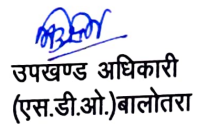 उपखण्ड अधिकारी
(एस.डी.ओ.)बालोतरा